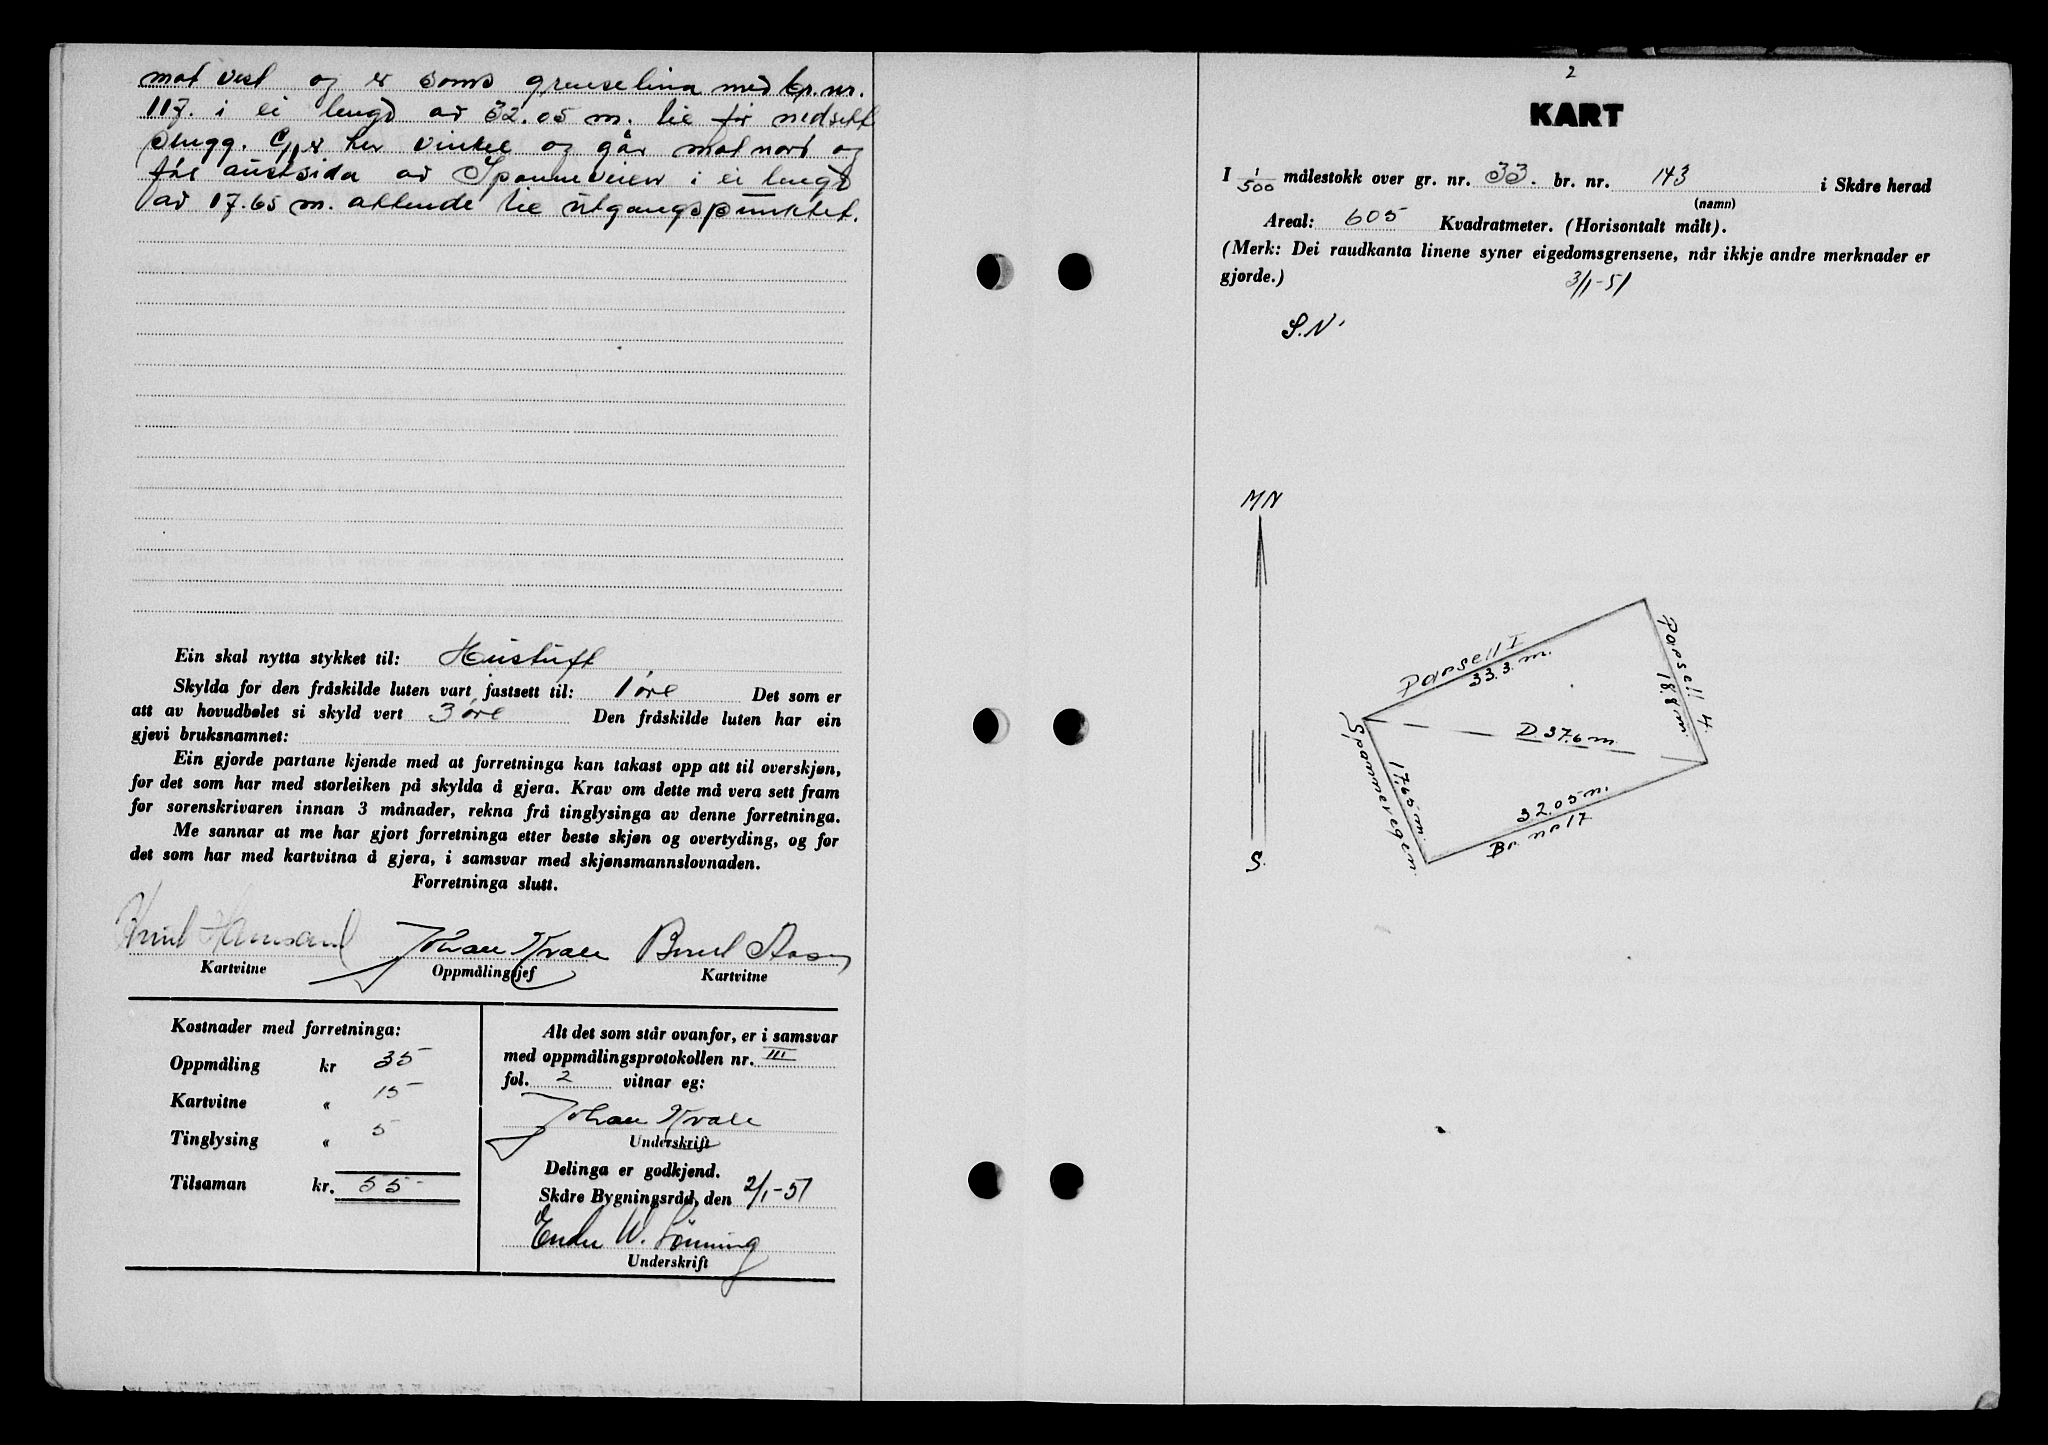 mot vest og er soms grenselina med br. nr.
117. i ei lengd av 32.05 m. til før nedsett
plugg. er her vinkel og går mot nord og
før austsida av Spanneveien i ei lengd
av 17.65 m. attende til utgangspunktet.
Ein skal nytta stykket til: Hustuft
Skylda for den fråskilde luten vart fastsett til: 1 øre Det som er
att av hovudbølet si skyld vert 3 øre Den fråskilde luten har ein
gjevi bruksnamnet:
Ein gjorde partane kjende med at forretninga kan takast opp att til overskjøn,
for det som har med storleiken på skylda å gjera. Krav om dette må vera sett fram
for sorenskrivaren innan 3 månader, rekna frå tinglysinga av denne forretninga.
Me sannar at me har gjort forretninga etter beste skjøn og overtyding, og for
det som har med kartvitna å gjera, i samsvar med skjønsmannslovnaden.
Forretninga slutt.
Johan Kvale
Kartvitne Oppmålingssjef Kartvitne
Kostnader med forretninga:
Oppmåling kr 35
Kartvitne „ 15
Tinglysing „ 5
Tilsaman kr. 55-
Alt det som står ovanfor, er i samsvar
med oppmålingsprotokollen nr. III
fol. 2 vitnar eg:
Johan Kvale
Underskrift
Delinga er godkjend.
Skåre Bygningsråd, den 2/1-51
Endre W. Lønning
Underskrift
2
KART
I 1/500 målestokk over gr. nr. 33. br. nr. 143 i Skåre herad
(namn)
Areal: 605 Kvadratmeter. (Horisontalt målt).
(Merk: Dei raudkanta linene syner eigedomsgrensene, når ikkje andre merknader er
gjorde.)
3/1-51
S.N.
MN
S.
Parsell I
33.3. m.
Parsell 4.
18.8 m.
D. 37.6 m.
Spannevegen
17.65 m.
32.05 m.
Br. nr 17